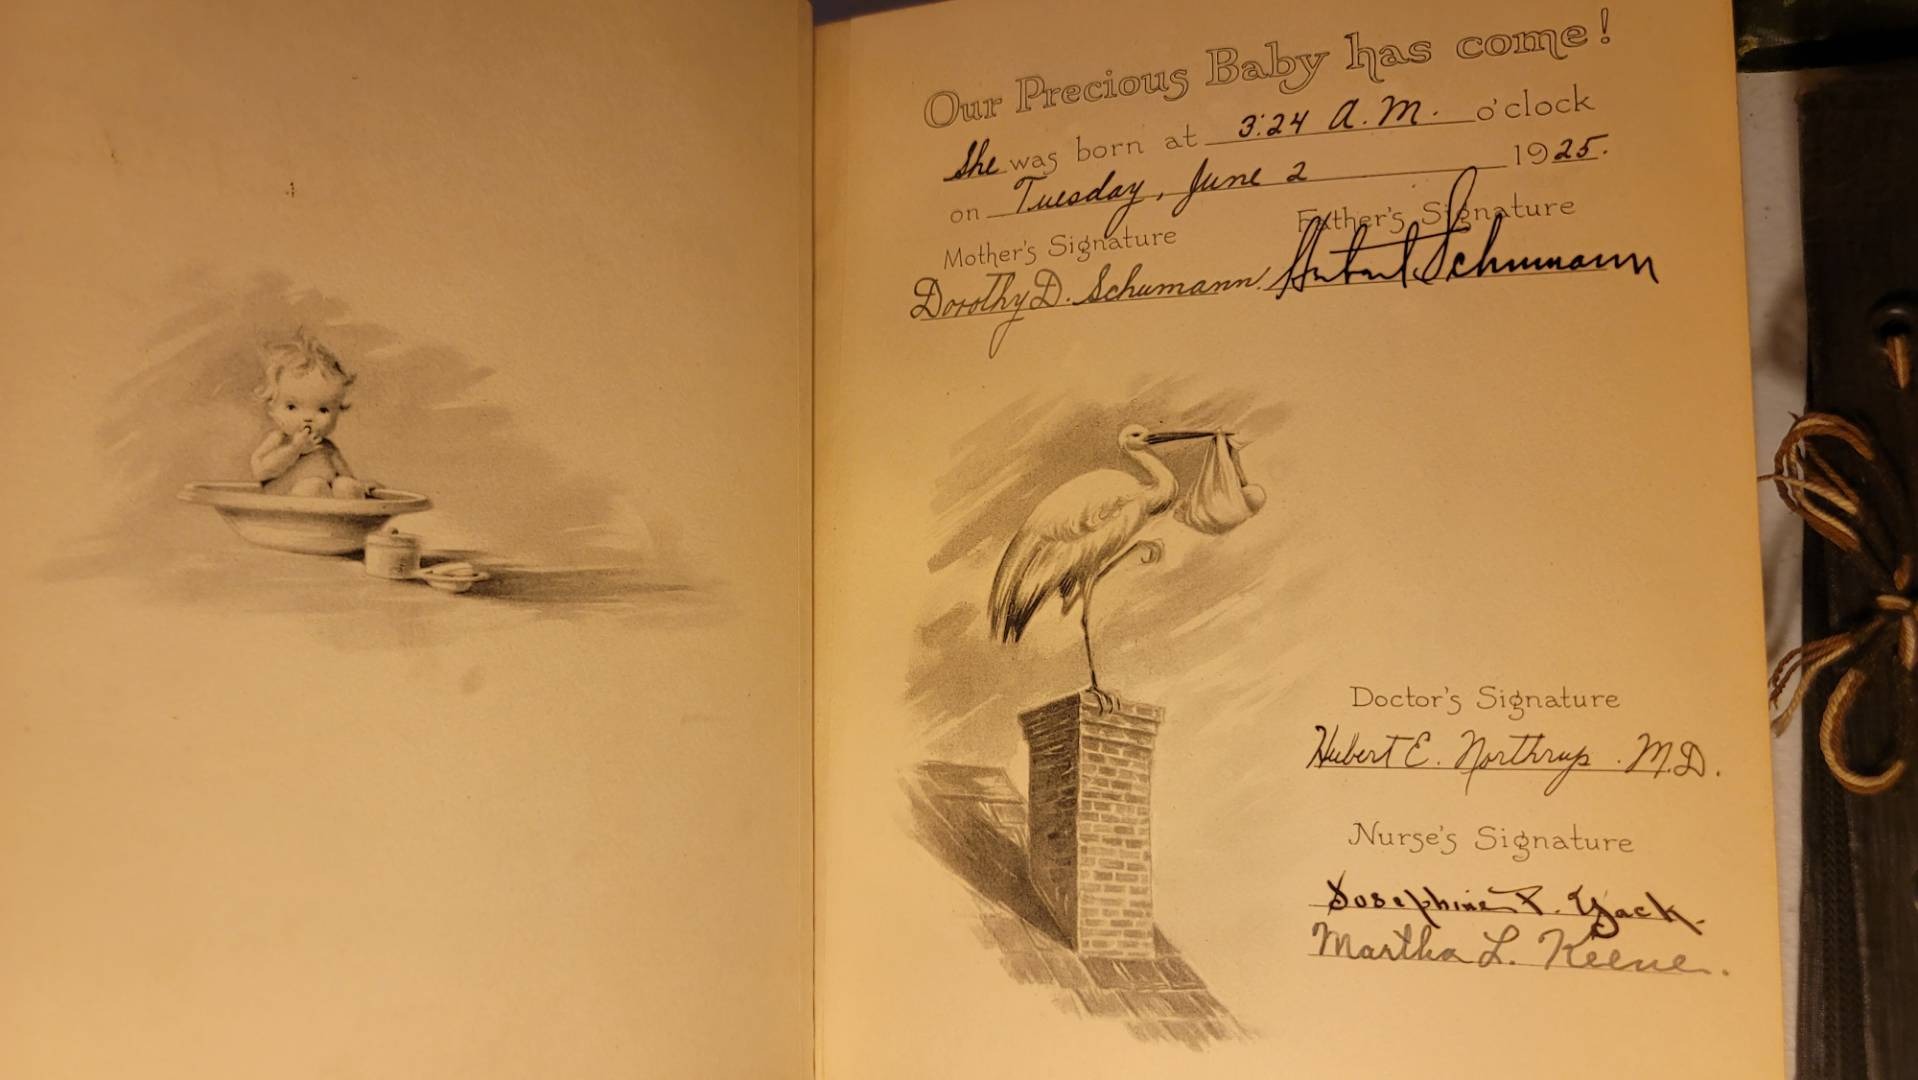 Our Precious Baby has come!
She was born at 3:24 A.M. o'clock
on Tuesday, June 2 1925.
Mother's Signature Father's Signature
Dorothy D. Schumann. Schumann
Doctor's Signature
Hubert E. Northrup. M.D.
Nurse's Signature
Josephine F.
Martha L. Keene.